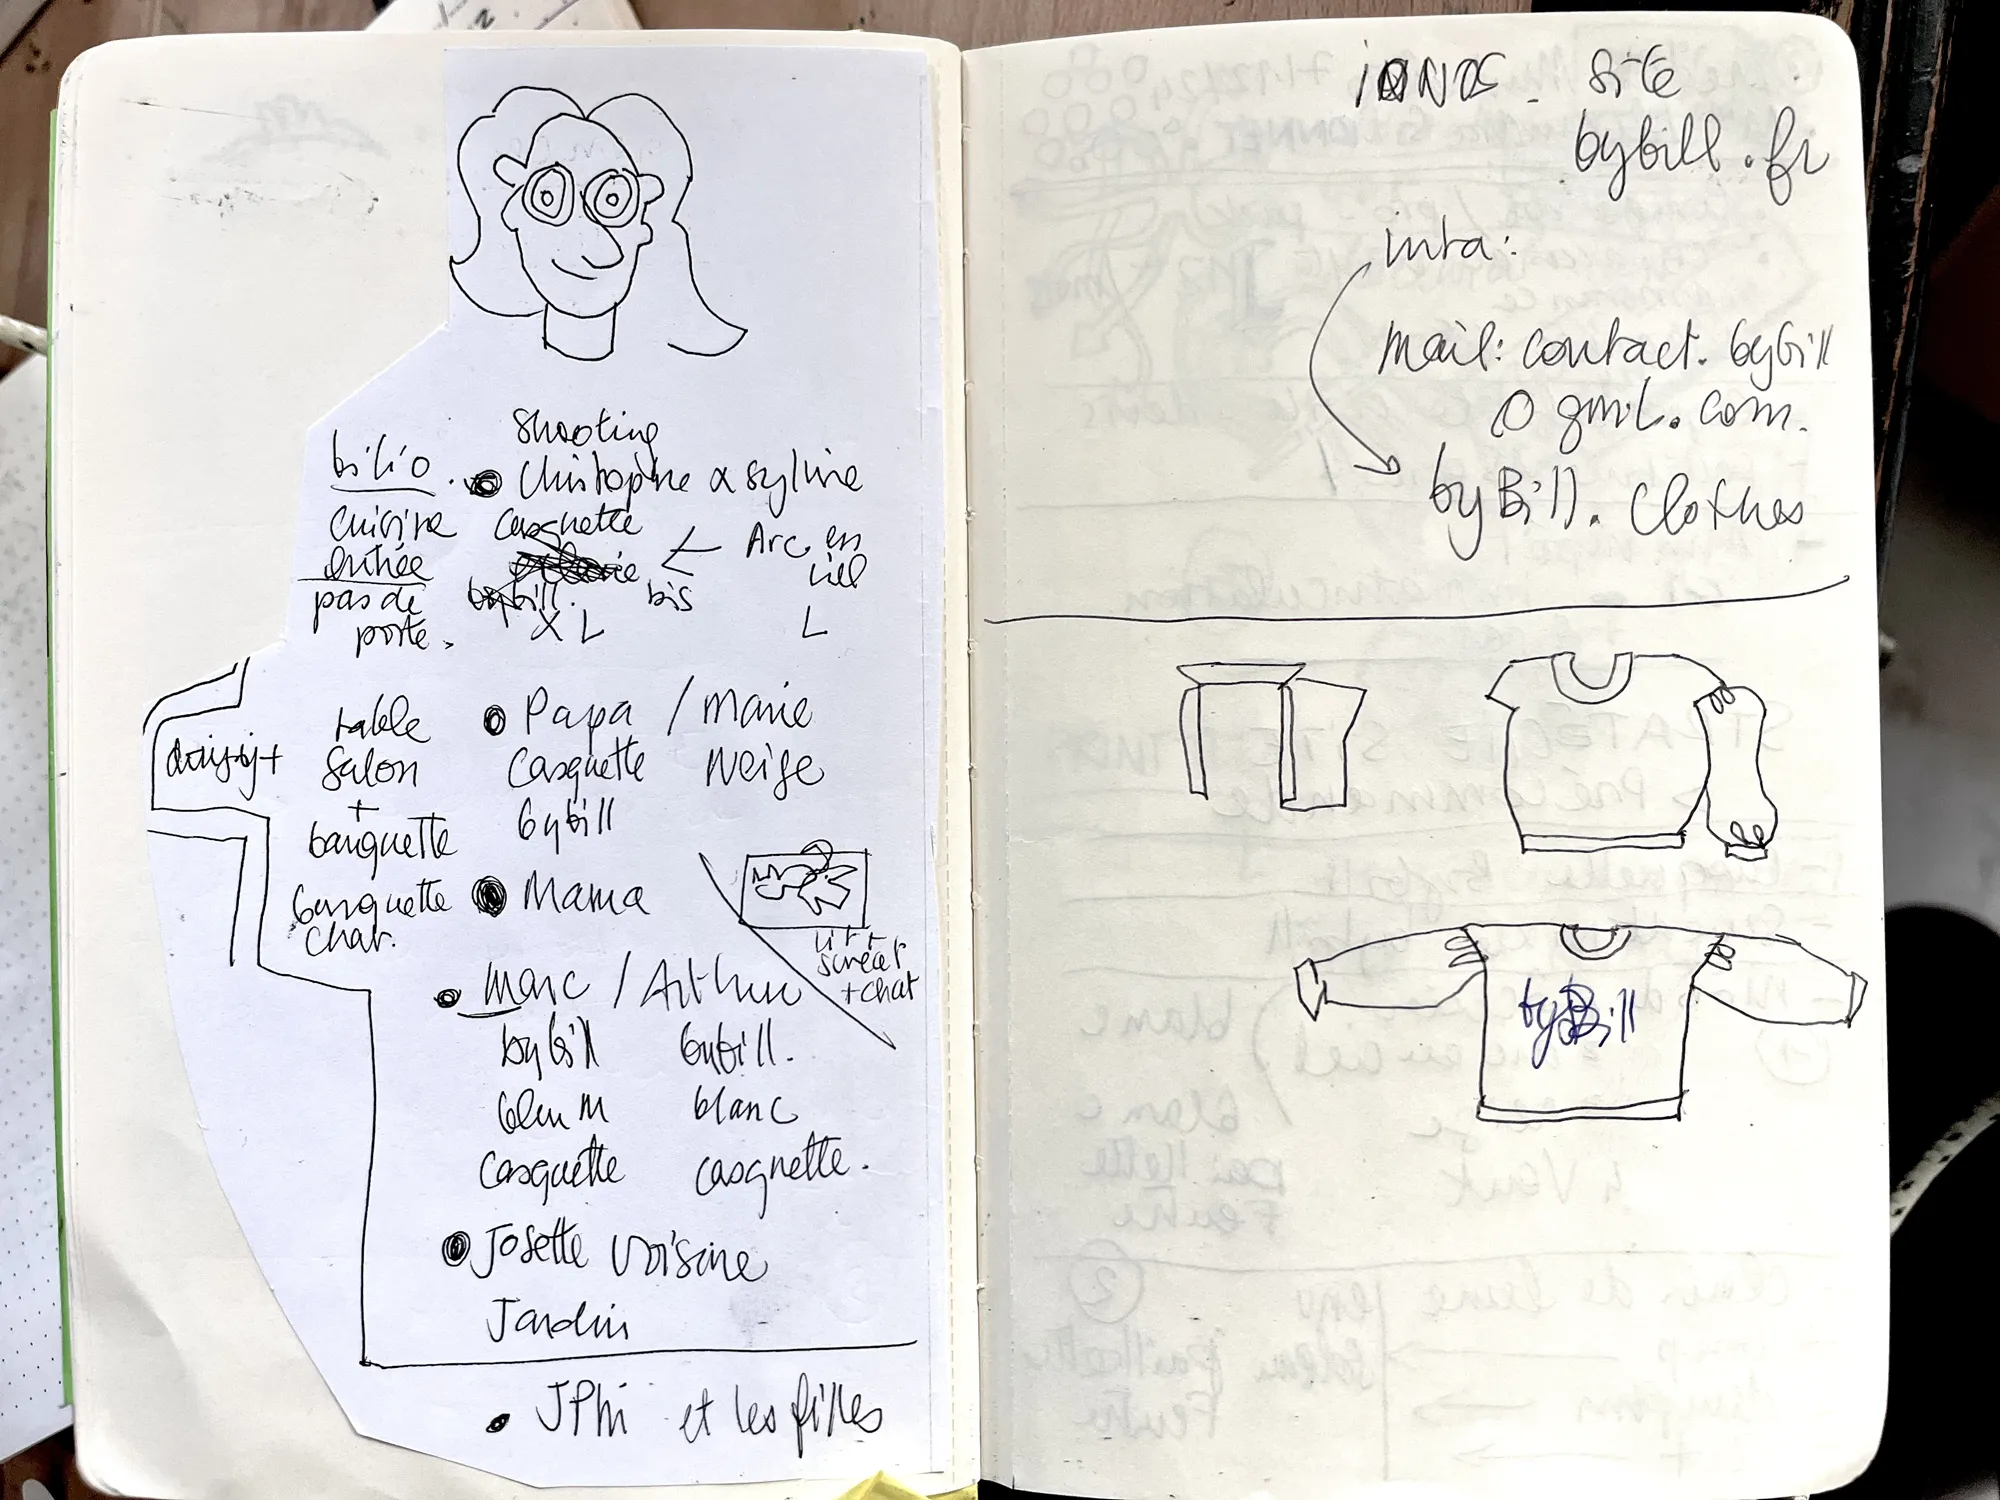 shooting
biblio . Christophe & Sylvine
cuisine casquette ← Arc en
entrée ciel
pas de bybill. bis
porte. XL L
table Papa / Marie
salon casquette Neige
+ bybill
banquette
banquette Mama
chat.
lit +
street
+ chat
Marc / Arthur
bybill bybill.
bleu M blanc
casquette casquette.
Josette voisine
Jardin
JPhi et les filles
IONOS. site
bybill.fr
insta:
mail: contact.bybill
@ gmil.com.
byBill.clothes
byBill